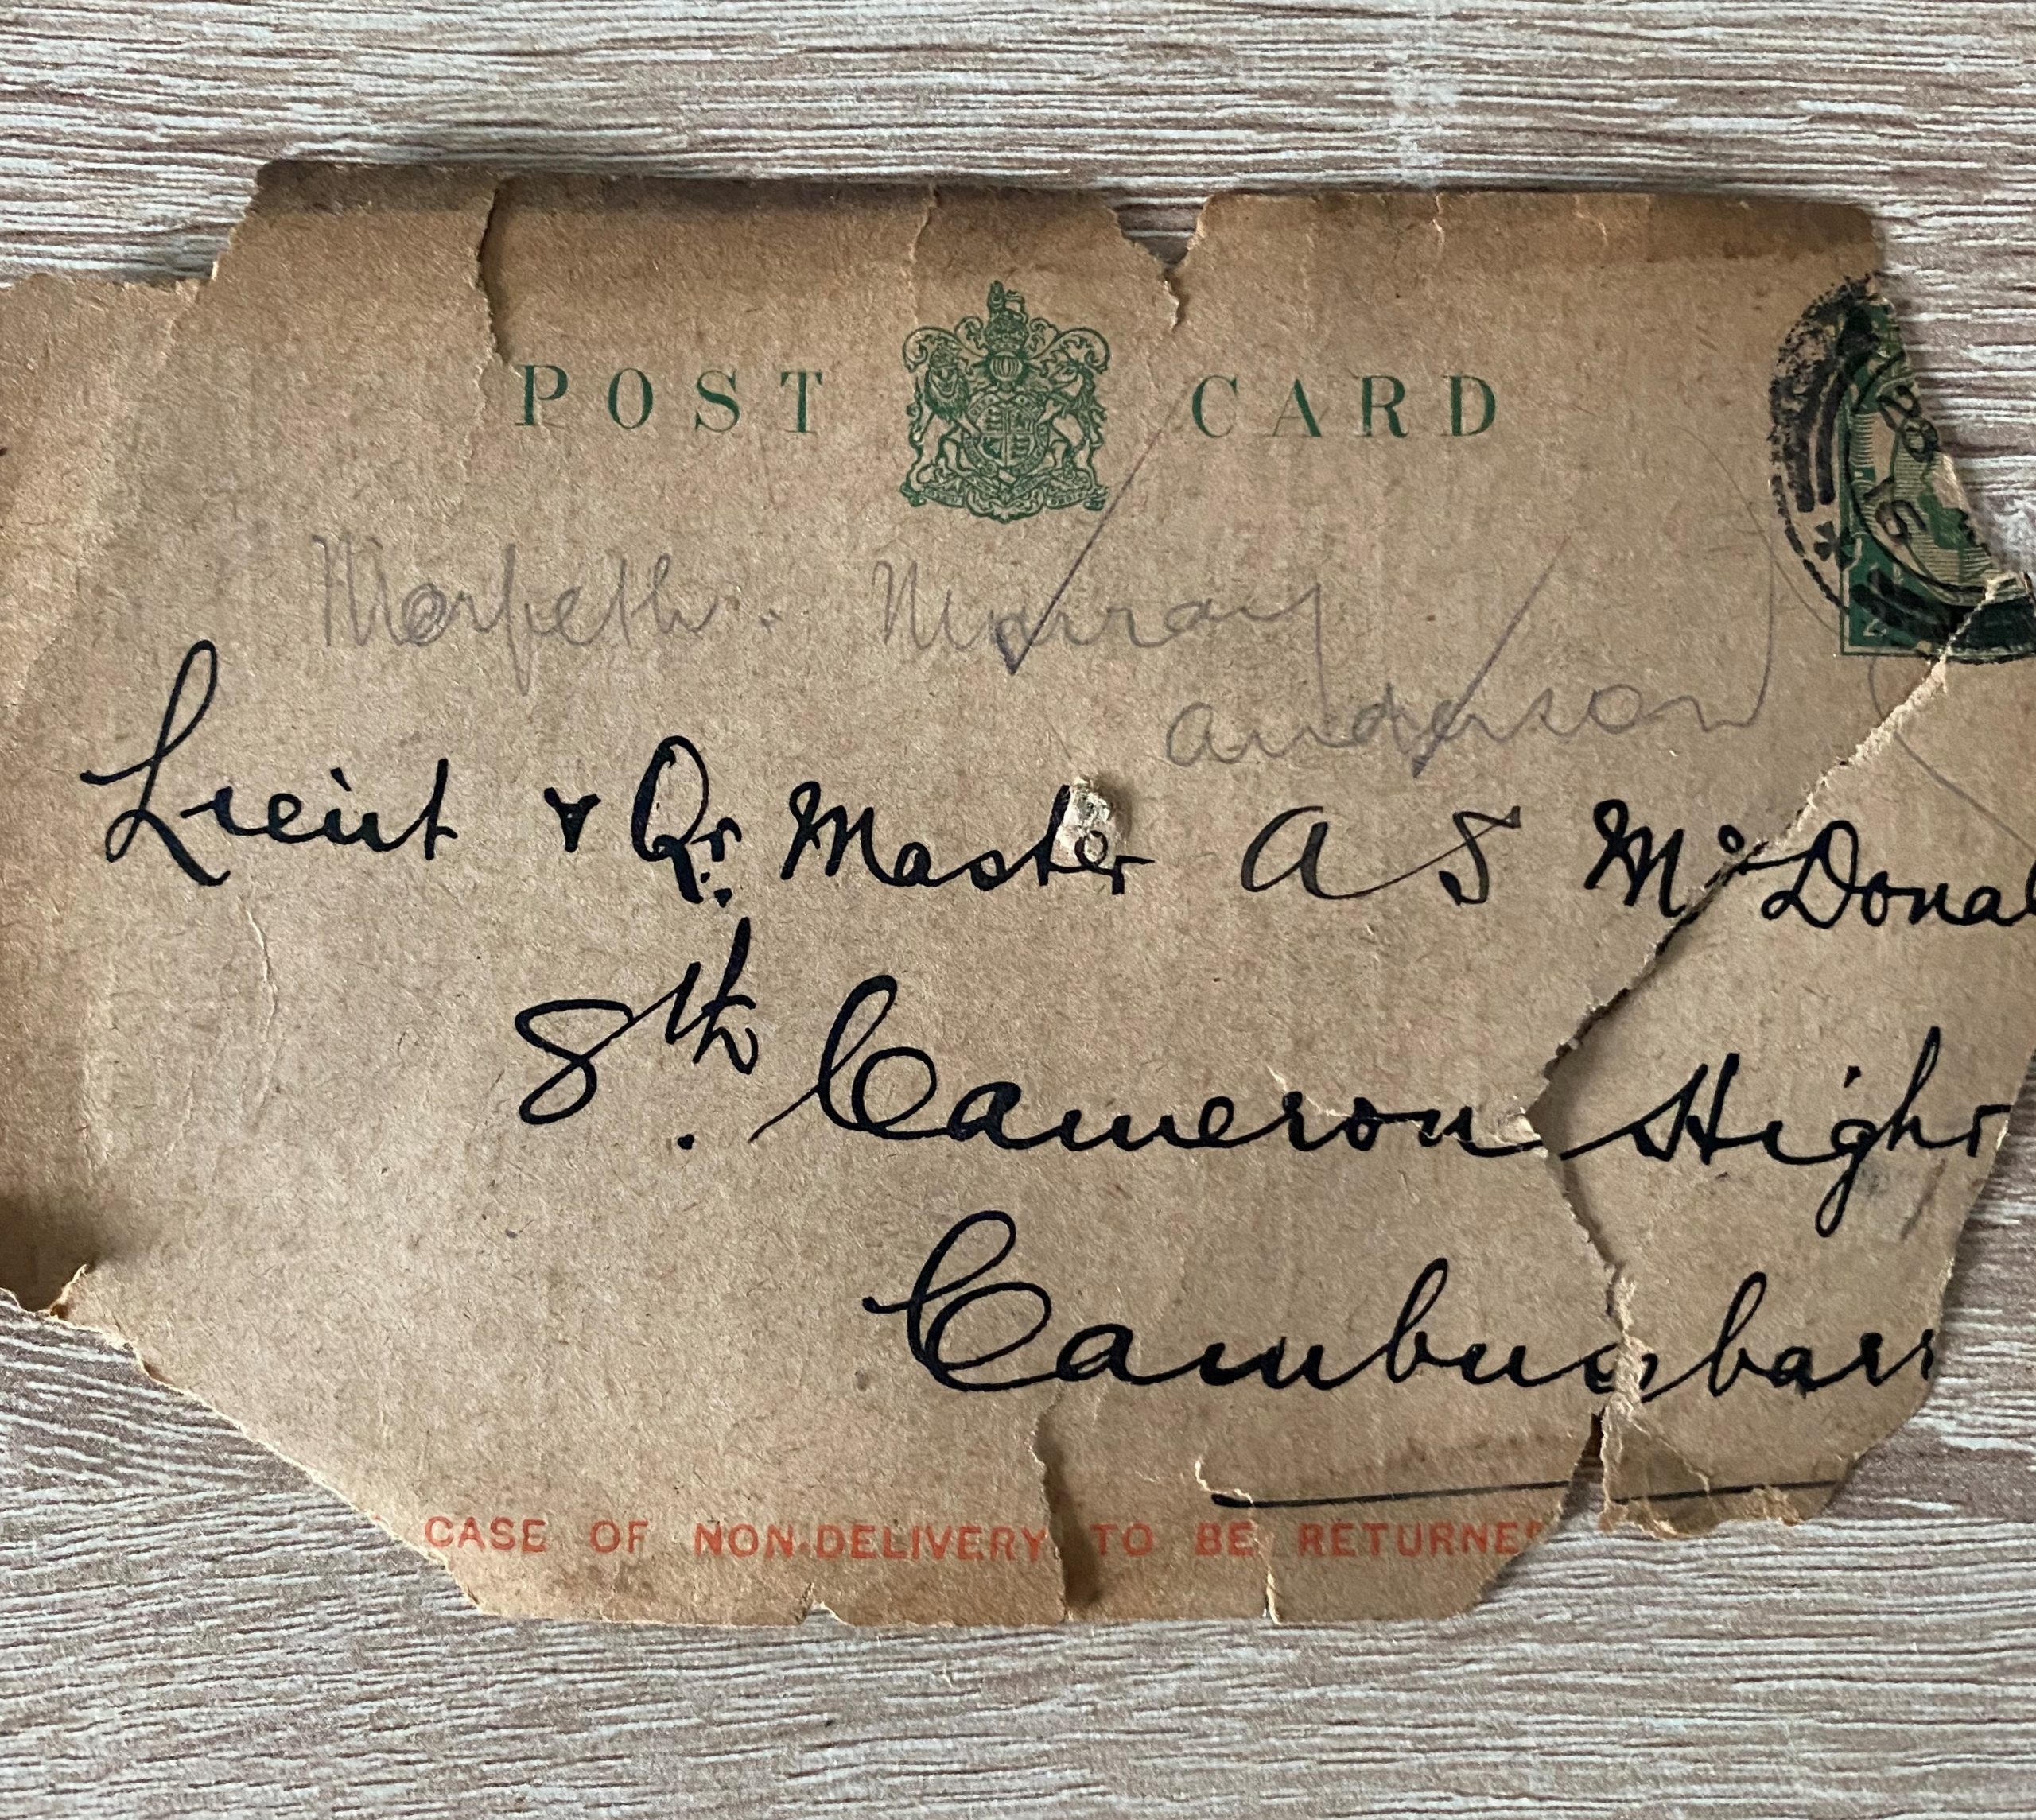 POST CARD
28 15
Morpeth. Murray
anderson
Lieut & Qr. Master A S McDonal
8th. Cameron Highr
Cambusbarr
CASE OF NON-DELIVERY TO BE RETURNED